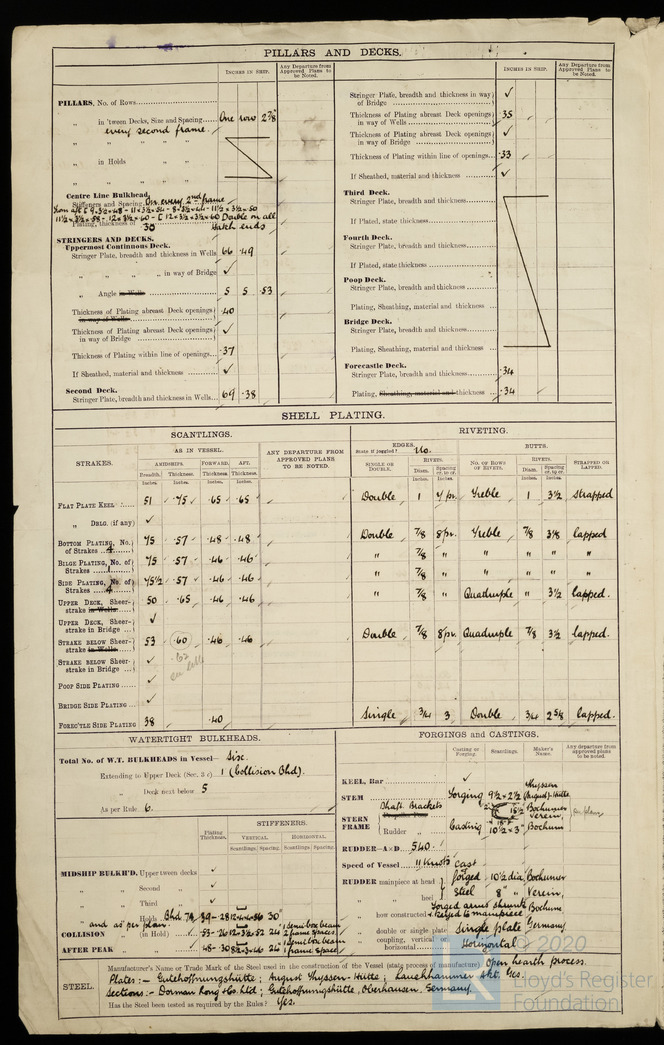 PILLARS AND DECKS.
INCHES IN SHIP.
Any Departure from Approved Plans to be Noted.
PILLARS, No. of Rows
„ in 'tween Decks, Size and Spacing One row 2⅞"
every second frame.
„ „ „ „
„ in Holds „ „
„ „ „ „
Centre Line Bulkhead.
Stiffeners and Spacing On every 2nd frame
Plating, thickness of 30 Double on all hatch ends
STRINGERS AND DECKS.
Uppermost Continuous Deck.
Stringer Plate, breadth and thickness in Wells 66 .49
„ „ „ „ in way of Bridge ✓
„ Angle in Wells 5 5 .53
Thickness of Plating abreast Deck openings in way of Wells .40
Thickness of Plating abreast Deck openings in way of Bridge ✓
Thickness of Plating within line of openings .37
If Sheathed, material and thickness ✓
Second Deck.
Stringer Plate, breadth and thickness in Wells 69 .38
INCHES IN SHIP.
Any Departure from Approved Plans to be Noted.
Stringer Plate, breadth and thickness in way of Bridge ✓
Thickness of Plating abreast Deck openings in way of Wells .35
Thickness of Plating abreast Deck openings in way of Bridge ✓
Thickness of Plating within line of openings .33
If Sheathed, material and thickness ✓
Third Deck.
Stringer Plate, breadth and thickness
If Plated, state thickness
Fourth Deck.
Stringer Plate, breadth and thickness
If Plated, state thickness
Poop Deck.
Stringer Plate, breadth and thickness
Plating, Sheathing, material and thickness
Bridge Deck.
Stringer Plate, breadth and thickness
Plating, Sheathing, material and thickness
Forecastle Deck.
Stringer Plate, breadth and thickness .34
Plating, Sheathing, material and thickness .34
SHELL PLATING.
SCANTLINGS.
RIVETING.
STRAKES.
AS IN VESSEL.
AMIDSHIPS. FORWARD. AFT.
Breadth. Thickness. Thickness. Thickness.
Inches. Inches. Inches. Inches.
ANY DEPARTURE FROM APPROVED PLANS TO BE NOTED.
EDGES. State if joggled? No.
BUTTS.
SINGLE OR DOUBLE.
RIVETS. Diam. Spacing cr. to cr.
NO. OF ROWS OF RIVETS.
RIVETS. Diam. Spacing cr. to cr.
STRAPPED OR LAPPED.
Inches. Inches. Inches. Inches.
FLAT PLATE KEEL 51 .75 .65 .65 Double 1 4 pr. Treble 1 3½ strapped
„ DBLG. (if any) ✓
BOTTOM PLATING, No. of Strakes 4 75 .57 .48 .48 Double 7/8 8 pr. Treble 7/8 3⅛ lapped
BILGE PLATING, No. of Strakes 1 75 .57 .46 .46 „ 7/8 „ „ „ „ „
SIDE PLATING, No. of Strakes 4 75½ .57 .46 .46 „ 7/8 „ „ „ „ „
UPPER DECK, Sheerstrake in Wells 50 .65 .46 .46 „ 7/8 „ Quadruple „ 3½ lapped.
UPPER DECK, Sheerstrake in Bridge ✓
STRAKE BELOW Sheerstrake in Wells 53 .60 .46 .46 Double 7/8 8 pr. Quadruple 7/8 3½ lapped.
STRAKE BELOW Sheerstrake in Bridge ✓
POOP SIDE PLATING ✓
BRIDGE SIDE PLATING ✓
FOREC'TLE SIDE PLATING 38 .40 Single 3/4 3 Double 3/4 2⅝ lapped.
WATERTIGHT BULKHEADS.
Total No. of W.T. BULKHEADS in Vessel— Six.
Extending to Upper Deck (Sec. 3 c) 1 (Collision Bhd).
„ Deck next below 5
As per Rule 6.
Plating Thickness.
STIFFENERS.
VERTICAL. HORIZONTAL.
Scantlings. Spacing. Scantlings. Spacing.
MIDSHIP BULKH'D, Upper tween decks ✓
„ „ Second „ ✓
„ „ Third „ ✓
„ „ Holds Bhd 74 .39 - 28 30"
and as per plan.
COLLISION „ (in Hold) .53 - 26 24"
AFTER PEAK „ „ .48 - 30 24"
FORGINGS and CASTINGS.
Casting or Forging. Scantlings. Maker's Name. Any departure from approved plans to be noted.
KEEL, Bar ✓
STEM Forging 9½ × 2½ Thyssen (August)-Hütte.
STERN FRAME Shaft Brackets Bochumer Verein,
Rudder „ Casting 10½ × 3" Bochum
RUDDER—A×D 540.
Speed of Vessel 11 Knots
RUDDER mainpiece at head forged 10½ dia. Bochumer
„ „ heel Steel 8" „ Verein,
„ how constructed Forged arms shrunk & keyed to mainpiece Bochum,
„ double or single plate Single plate Germany.
„ coupling, vertical or horizontal Horizontal
STEEL.
Manufacturer's Name or Trade Mark of the Steel used in the construction of the Vessel (state process of manufacture) Open hearth process.
Plates :— Gutehoffnungshütte ; August Thyssen-Hütte ; Lauchhammer Akt. Ges.
Sections :— Dorman Long & Co. Ltd ; Gutehoffnungshütte, Oberhausen, Germany.
Has the Steel been tested as required by the Rules? Yes.
© 2020
Lloyd's Register
Foundation